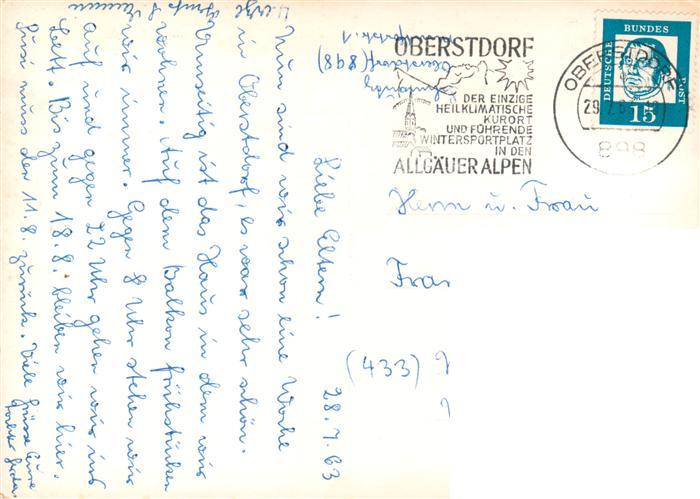 OBERSTDORF
DER EINZIGE
HEILKLIMATISCHE
KURORT
UND FÜHRENDE
WINTERSPORTPLATZ
IN DEN
ALLGÄUER ALPEN
OBERSTDORF
29.7.63
898
DEUTSCHE BUNDESPOST
15
Herrn u. Frau
Fra
(433)
Oberstdorf (898)
28.7.63
Liebe Eltern!
Nun sind wir schon eine Woche
in Oberstdorf, es war sehr schön.
Vernünftig ist das Haus in dem wir
wohnen. Auf dem Balkon frühstücken
wir immer. Gegen 8 Uhr stehen wir
auf und gegen 22 Uhr gehen wir ins
Bett. Bis zum 18.8. bleiben wir hier.
muss den 11.8. zurück. Viele Grüsse Eure